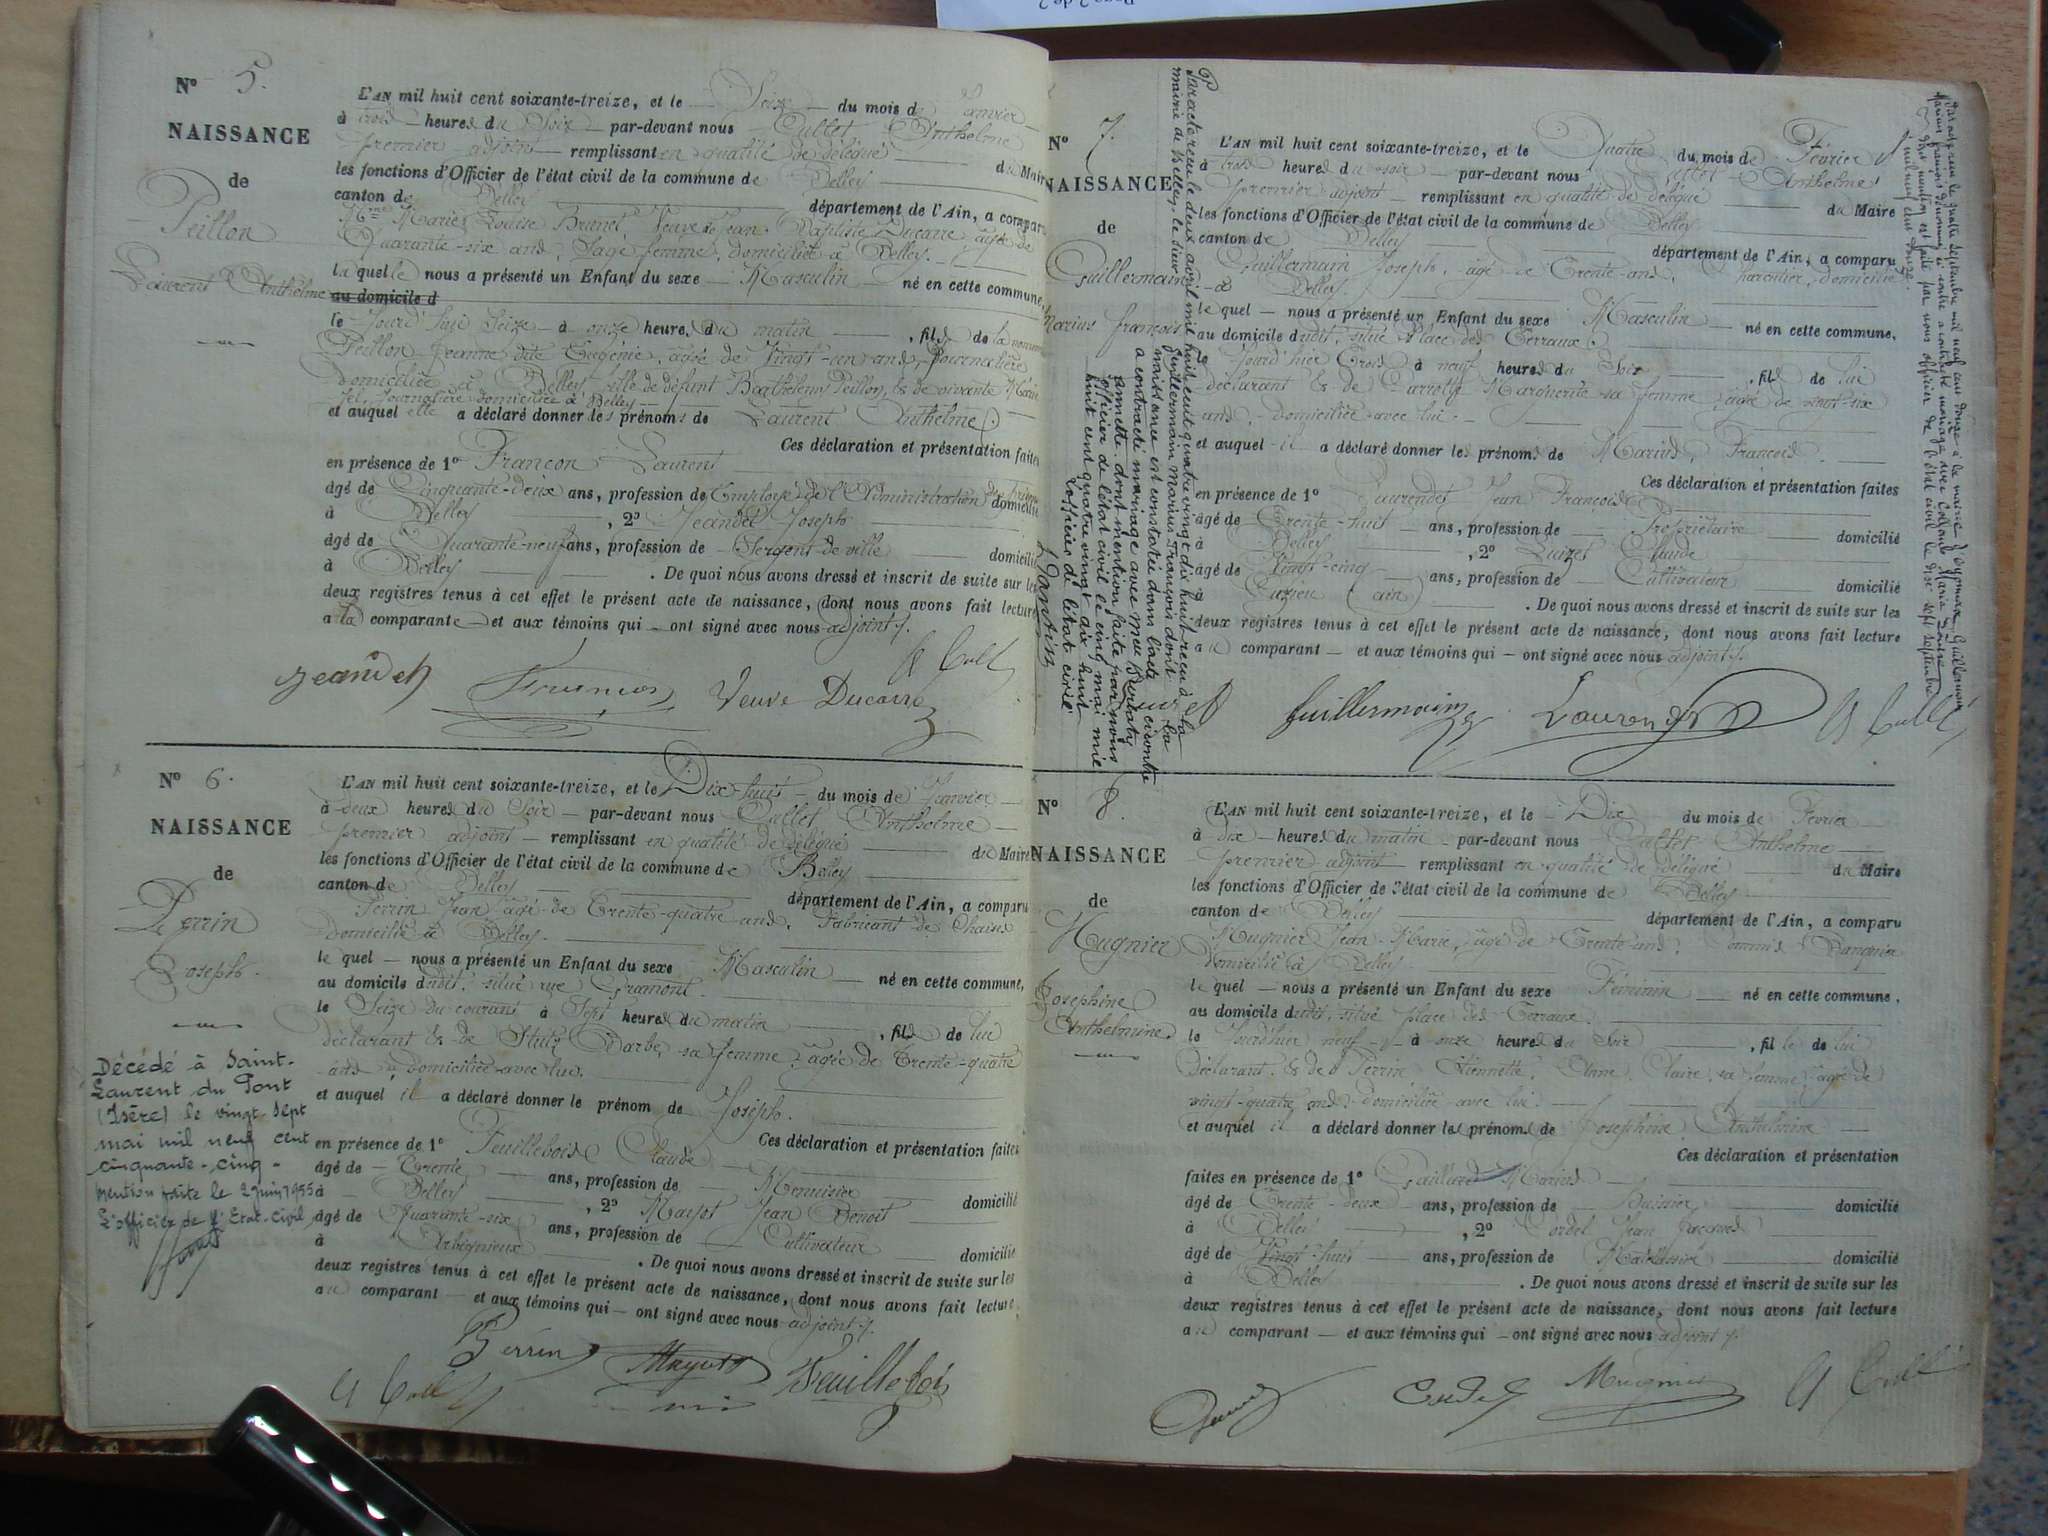 Page 2 de 2
N° 5.
NAISSANCE
de
Peillon
Laurent Anthelme
L'AN mil huit cent soixante-treize, et le Seize du mois de Janvier
à trois heures du Soir par-devant nous Cullet Anthelme
premier adjoint remplissant en qualité de délégué du Maire
les fonctions d'Officier de l'état civil de la commune de Belley
canton de Belley département de l'Ain, a comparu
Mme Marie Louise Brunet, Veuve de Jean Baptiste Ducarre âgée de
Quarante-six ans, Sage femme, domiciliée à Belley.
la quelle nous a présenté un Enfant du sexe Masculin né en cette commune,
au domicile d
le Jourd'hui Seize à onze heures du matin, fils de la nommée
Peillon Jeanne dite Eugénie, âgée de Vingt-un ans, Journalière
domiciliée à Belley, fille de défunt Barthélemy Peillon, & de vivante Marie
journalière domiciliée à Belley
et auquel elle a déclaré donner les prénoms de Laurent Anthelme.
Ces déclaration et présentation faites
en présence de 1° Francon Laurent
âgé de Cinquante-deux ans, profession de Employé de l'Administration domicilié
à Belley, 2° Jeandet Joseph
âgé de Quarante-neuf ans, profession de Sergent de ville domicilié
à Belley. De quoi nous avons dressé et inscrit de suite sur les
deux registres tenus à cet effet le présent acte de naissance, dont nous avons fait lecture
a la comparante et aux témoins qui ont signé avec nous adjoint.
Jeandet Francon Veuve Ducarre A Cullet
N° 6.
NAISSANCE
de
Perrin
Joseph.
Décédé à Saint-
Laurent du Pont
(Isère) le vingt sept
mai mil neuf cent
cinquante-cinq -
Mention faite le 2 juin 1955
L'officier de l'Etat-Civil
L'AN mil huit cent soixante-treize, et le Dix-huit du mois de Janvier
à deux heures du Soir par-devant nous Cullet Anthelme
premier adjoint remplissant en qualité de délégué du Maire
les fonctions d'Officier de l'état civil de la commune de Belley
canton de Belley département de l'Ain, a comparu
Perrin Jean âgé de Trente-quatre ans, Fabricant de Chaises
domicilié à Belley.
le quel nous a présenté un Enfant du sexe Masculin né en cette commune,
au domicile dudit, situé rue Gramont.
le Seize du courant à Sept heures du matin, fils de lui
déclarant & de Stutz Barbe, sa femme, âgée de Trente-quatre
ans domiciliée avec lui.
et auquel il a déclaré donner le prénom de Joseph.
Ces déclaration et présentation faites
en présence de 1° Feuillebois Claude
âgé de Trente ans, profession de Menuisier domicilié
à Belley, 2° Mayot Jean Benoit
âgé de Quarante-six ans, profession de Cultivateur domicilié
à Arbignieux. De quoi nous avons dressé et inscrit de suite sur les
deux registres tenus à cet effet le présent acte de naissance, dont nous avons fait lecture
au comparant et aux témoins qui ont signé avec nous adjoint.
Perrin Mayot Feuillebois
A Cullet
N° 7.
NAISSANCE
de
Guillermain
Marius François
Par acte reçu le deux avril mil huit cent quatre vingt dix huit reçu à la
mairie de Belley, le sieur Guillermain Marius François dont la
naissance est constatée dans l'acte ci contre
a contracté mariage avec Melle
Annette. dont mention faite par nous
officier de l'état civil le cinq mai mil
huit cent quatre vingt dix huit
L'officier de l'état civil
L'AN mil huit cent soixante-treize, et le Quatre du mois de Février
à trois heures du soir par-devant nous Cullet Anthelme
premier adjoint remplissant en qualité de délégué du Maire
les fonctions d'Officier de l'état civil de la commune de Belley
canton de Belley département de l'Ain, a comparu
Guillermain Joseph, âgé de Trente ans, Charcutier, domicilié
à Belley.
le quel nous a présenté un Enfant du sexe Masculin né en cette commune,
au domicile dudit, situé Place des Terreaux.
le Jourd'hier Trois à neuf heures du Soir, fils de lui
déclarant & de Carrotte Marguerite sa femme, âgée de
ans, domiciliée avec lui.
et auquel il a déclaré donner les prénoms de Marius, François.
Ces déclaration et présentation faites
en présence de 1° Laurendet Jean François
âgé de Trente-huit ans, profession de Propriétaire domicilié
à Belley, 2° Luizet Claude
âgé de Vingt-cinq ans, profession de Cultivateur domicilié
à Cuzieu (Ain). De quoi nous avons dressé et inscrit de suite sur les
deux registres tenus à cet effet le présent acte de naissance, dont nous avons fait lecture
au comparant et aux témoins qui ont signé avec nous adjoint.
Guillermain A Cullet
Par acte reçu le quatre septembre mil neuf cent douze à la mairie d'Oyonnax, Guillermain
Marius François dénommé ci contre a contracté mariage avec Marie Louise
dont mention est faite par nous officier de l'état civil le dix sept septembre
mil neuf cent douze.
N° 8.
NAISSANCE
de
Mugnier
Joséphine
Anthelmine.
L'AN mil huit cent soixante-treize, et le Dix du mois de Février
à dix heures du matin par-devant nous Cullet Anthelme
premier adjoint remplissant en qualité de délégué du Maire
les fonctions d'Officier de l'état civil de la commune de Belley
canton de Belley département de l'Ain, a comparu
Mugnier Jean-Marie, âgé de Trente ans, Commis Banquier
domicilié à Belley
le quel nous a présenté un Enfant du sexe Féminin né en cette commune,
au domicile dudit, situé place des Terreaux.
le Jourd'hier neuf à onze heures du Soir, fille de lui
déclarant, & de Perrin Etiennette, Anne, Claire, sa femme, âgée de
vingt-quatre ans, domiciliée avec lui.
et auquel il a déclaré donner les prénoms de Joséphine Anthelmine
Ces déclaration et présentation
faites en présence de 1° Gaillard Marius
âgé de Trente-deux ans, profession de Huissier domicilié
à Belley, 2° Cordel Jean Jacques
âgé de Vingt-huit ans, profession de domicilié
à Belley. De quoi nous avons dressé et inscrit de suite sur les
deux registres tenus à cet effet le présent acte de naissance, dont nous avons fait lecture
au comparant et aux témoins qui ont signé avec nous adjoint.
Cordel Mugnier A Cullet